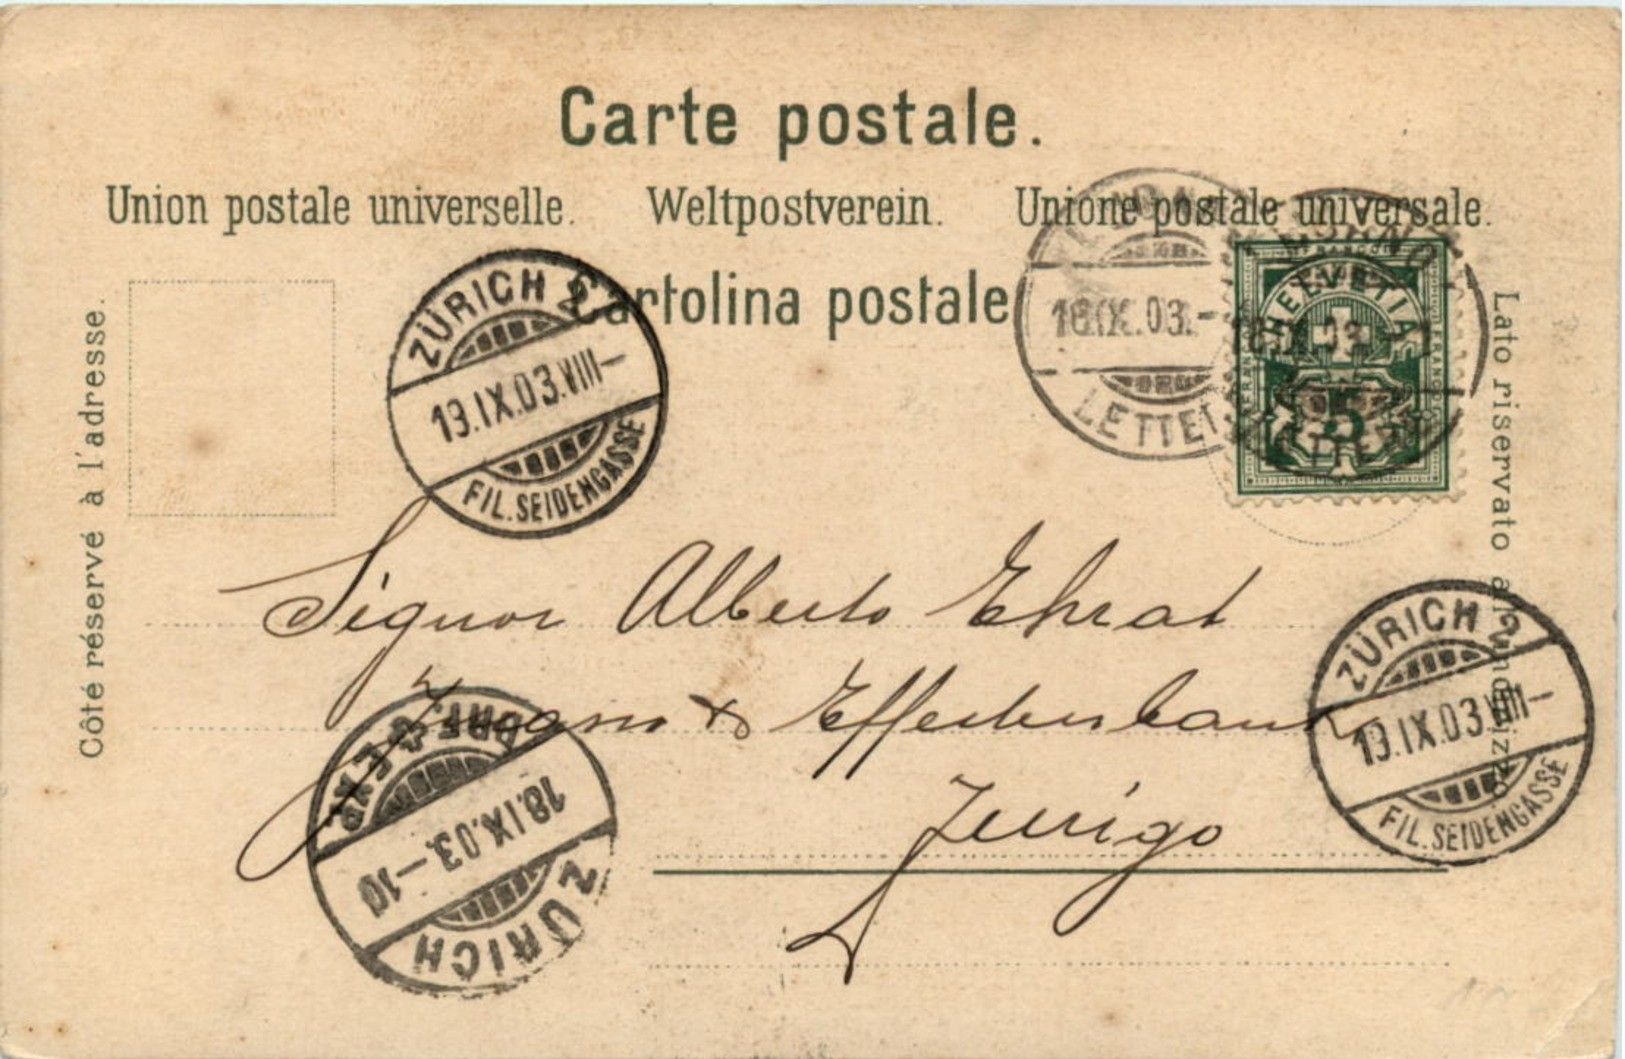 Carte postale.
Union postale universelle. Weltpostverein. Unione postale universale.
Cartolina postale
Côté réservé à l'adresse.
Lato riservato all'indirizzo
ZÜRICH 2
19.IX.03.VIII–
FIL. SEIDENGASSE
18.IX.03.–
LETTERE
FRANCO
HELVETIA
5
Signor Alberto Ehrat
& Effectenbank
Zurigo
BRF. & EXP.
18.IX.03.–10
ZÜRICH
ZÜRICH 2
19.IX.03.VIII–
FIL. SEIDENGASSE